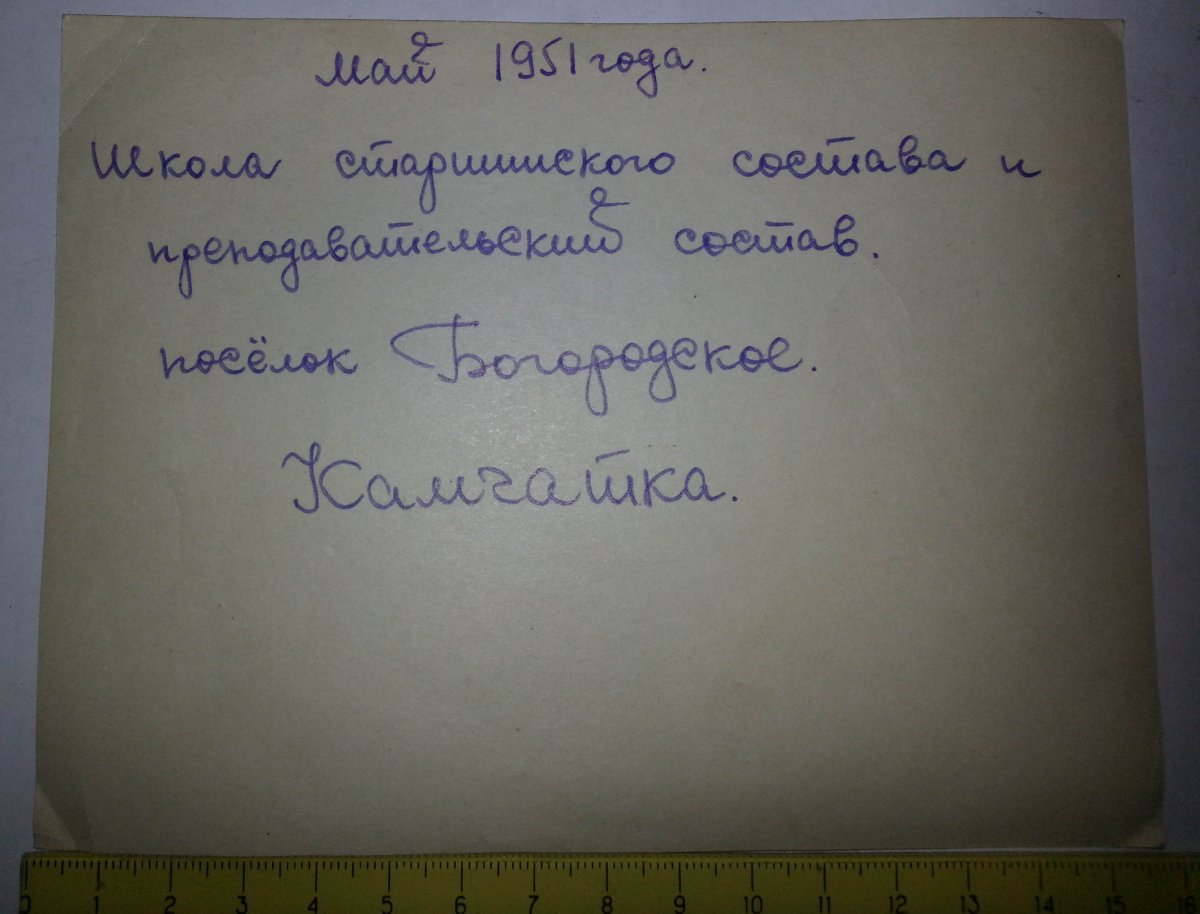 Май 1951 года.
Школа старшинского состава и
преподавательский состав.
посёлок Богородское.
Камчатка.
0 1 2 3 4 5 6 7 8 9 10 11 12 13 14 15 16